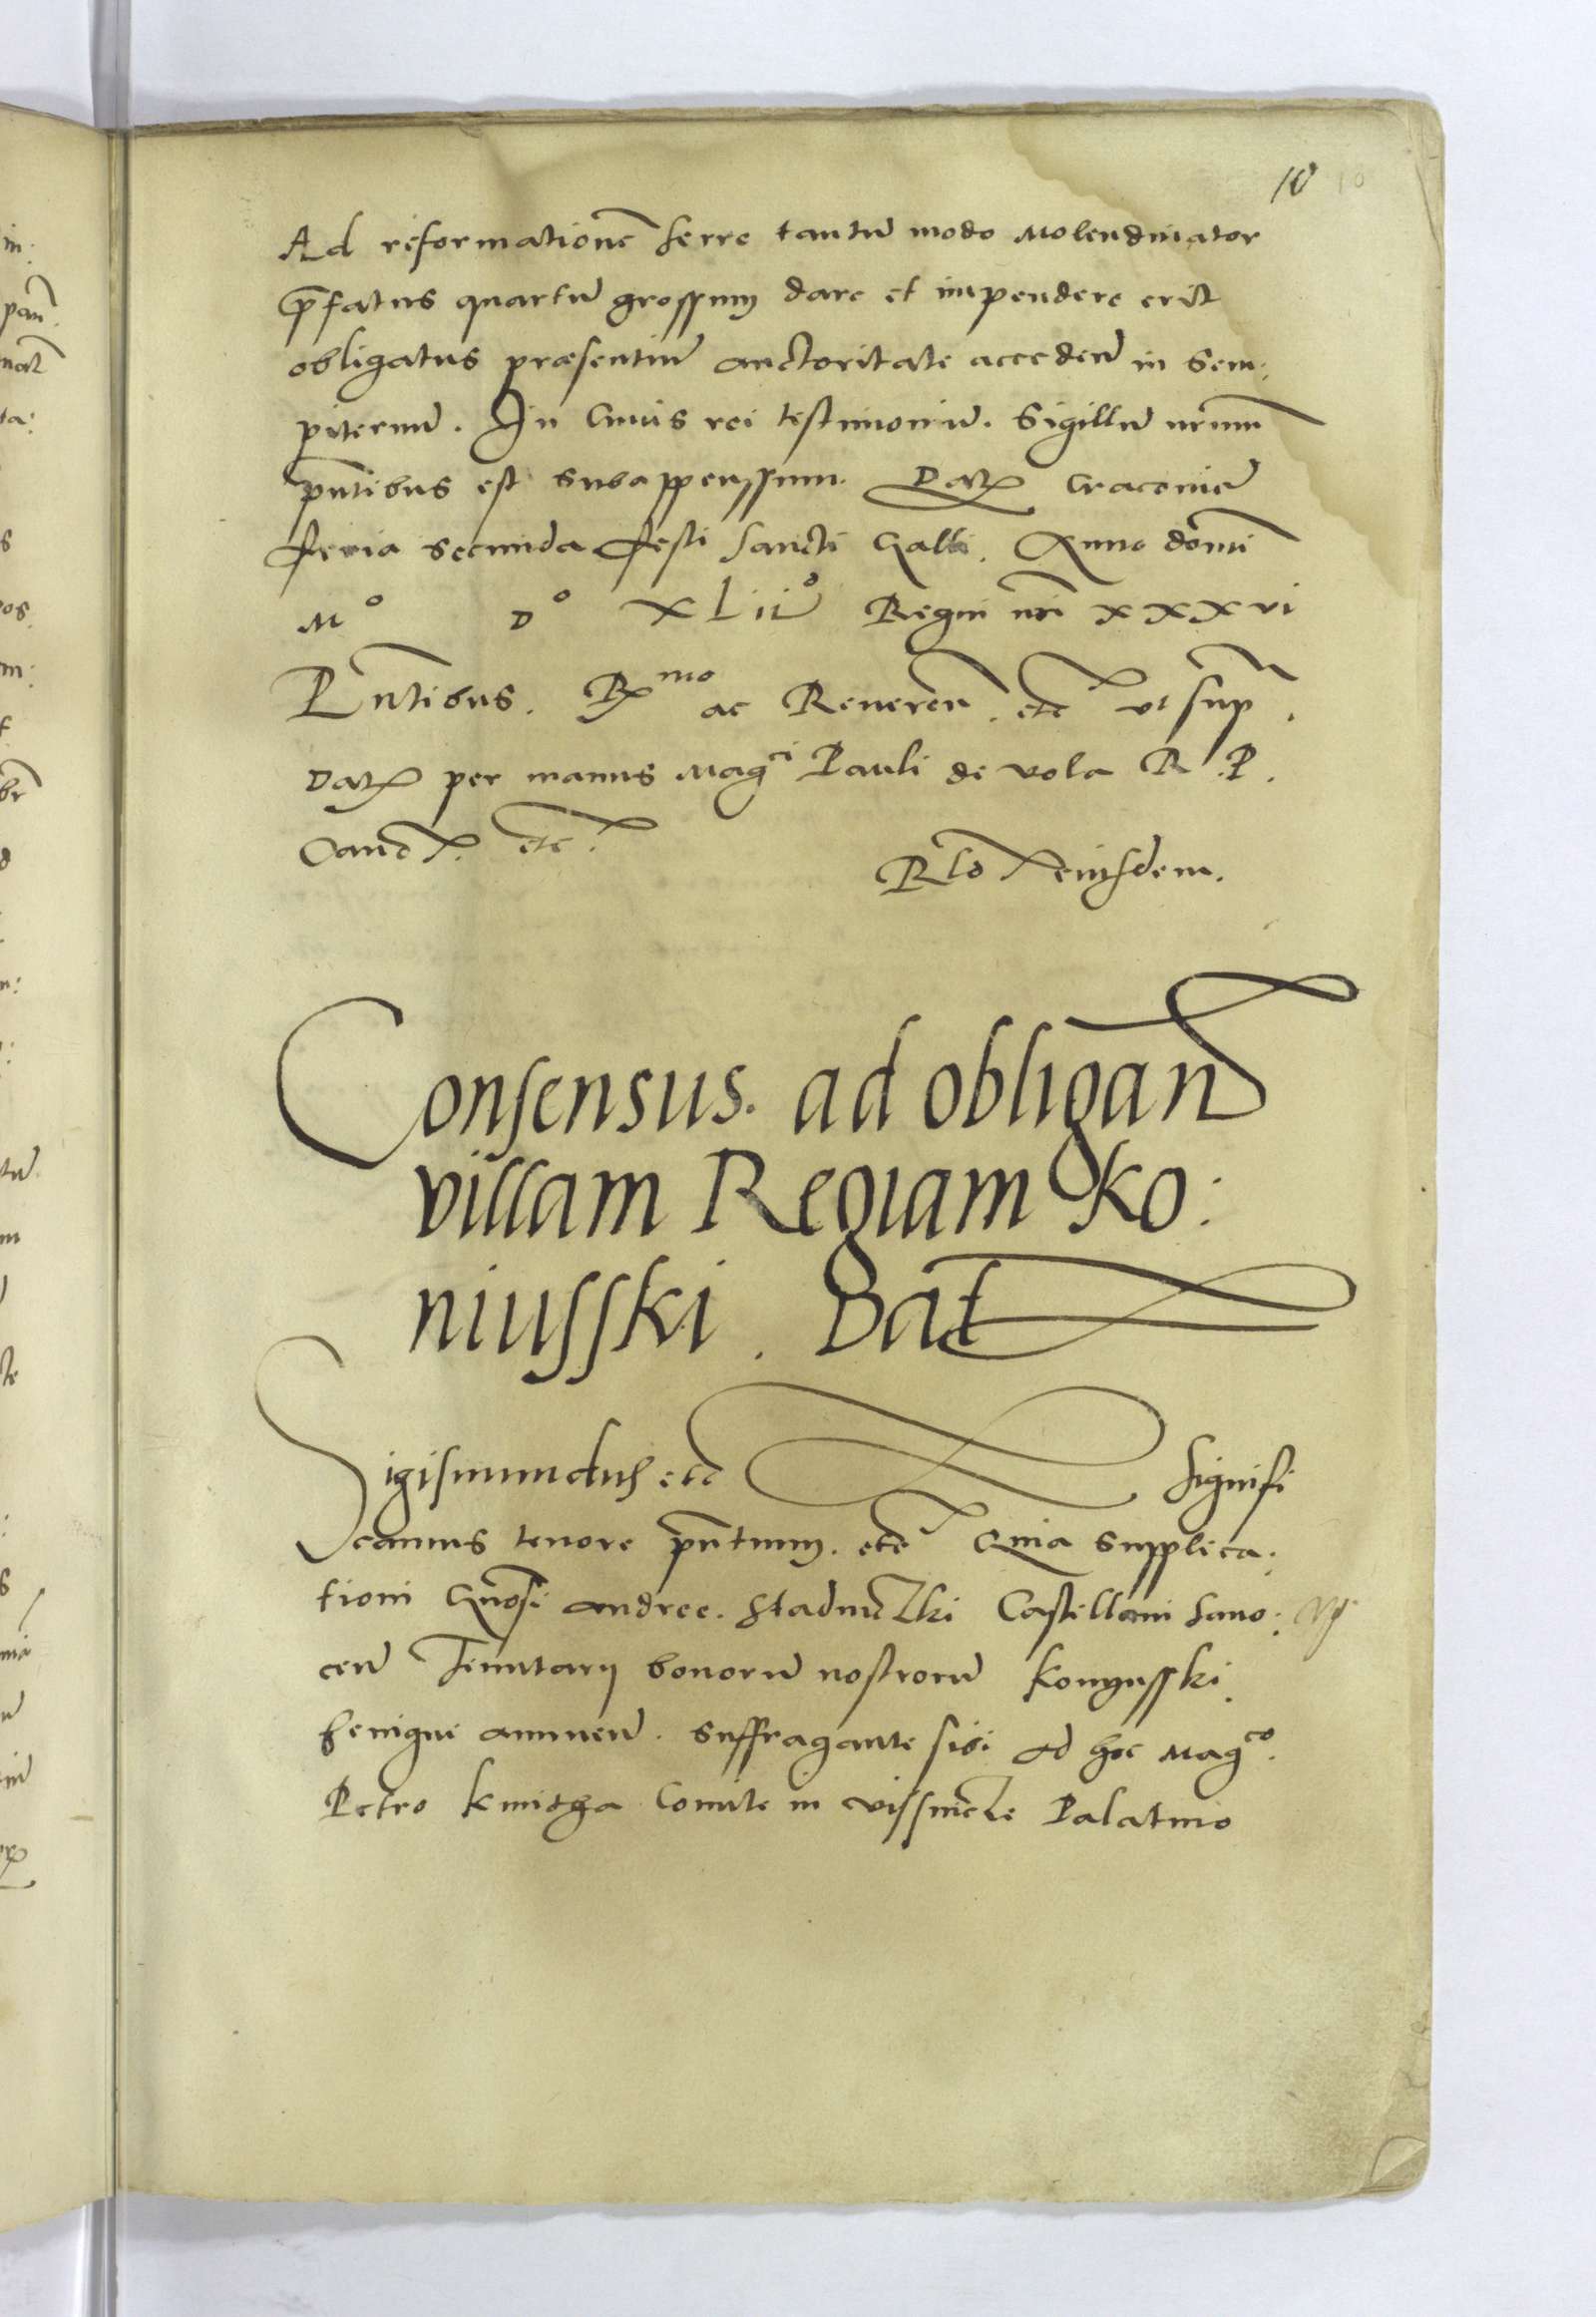 10 10
Ad reformationē serre tantū modo Molendinator
p̄fatus quartū grossum dare et impendere erit
obligatus præsentiū auctoritate acceden̄ in Sem:
piternū. In Cuius rei testimoniū. Sigillū nr̄um
pn̄tibus est subappenssum. Dat Cracovie
feria secunda festi Sancti Galli. Anno domī
Mº Dº XLIIº Regni nr̄i XXXVI
Pn̄tibus. Rmo ac Reveren. etc ut supr.
Dat per manus Magci Pauli de vola R. P.
Canc. etc.
Rlo eiusdem.
Consensus. ad obligan̄
villam Regiam Ko:
niusski. Dat̄
Sigismundus etc Signifi
camus tenore pn̄tium. etc Quia supplica:
tioni Gnōsi andree. Stadniczki Castellani Sano:
cen̄ Tenutarij bonorū nostrorū Konyusski
benigne annuen̄. Suffragante sibi ad hoc Magco.
Petro Kmitha Comite in vissnicze Palatino